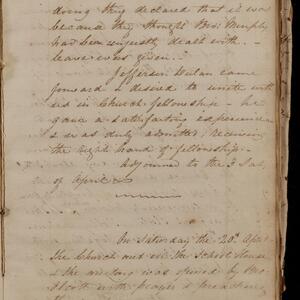 doing they declared that it was
because they thought Bro: Murphy
has been unjustly dealt with. -
leave was given. "
Jefferson came
forward & desired to unite with
us in Church fellowship - he
gave a satisfactory experience
& was duly admitted, receiving
the right hand of fellowship.
Adjourned to the 3 Sat.
of April
On Saturday the 20th Apl.
the Church met in the School House
& the meeting was opened by Bro
with prayer & preaching